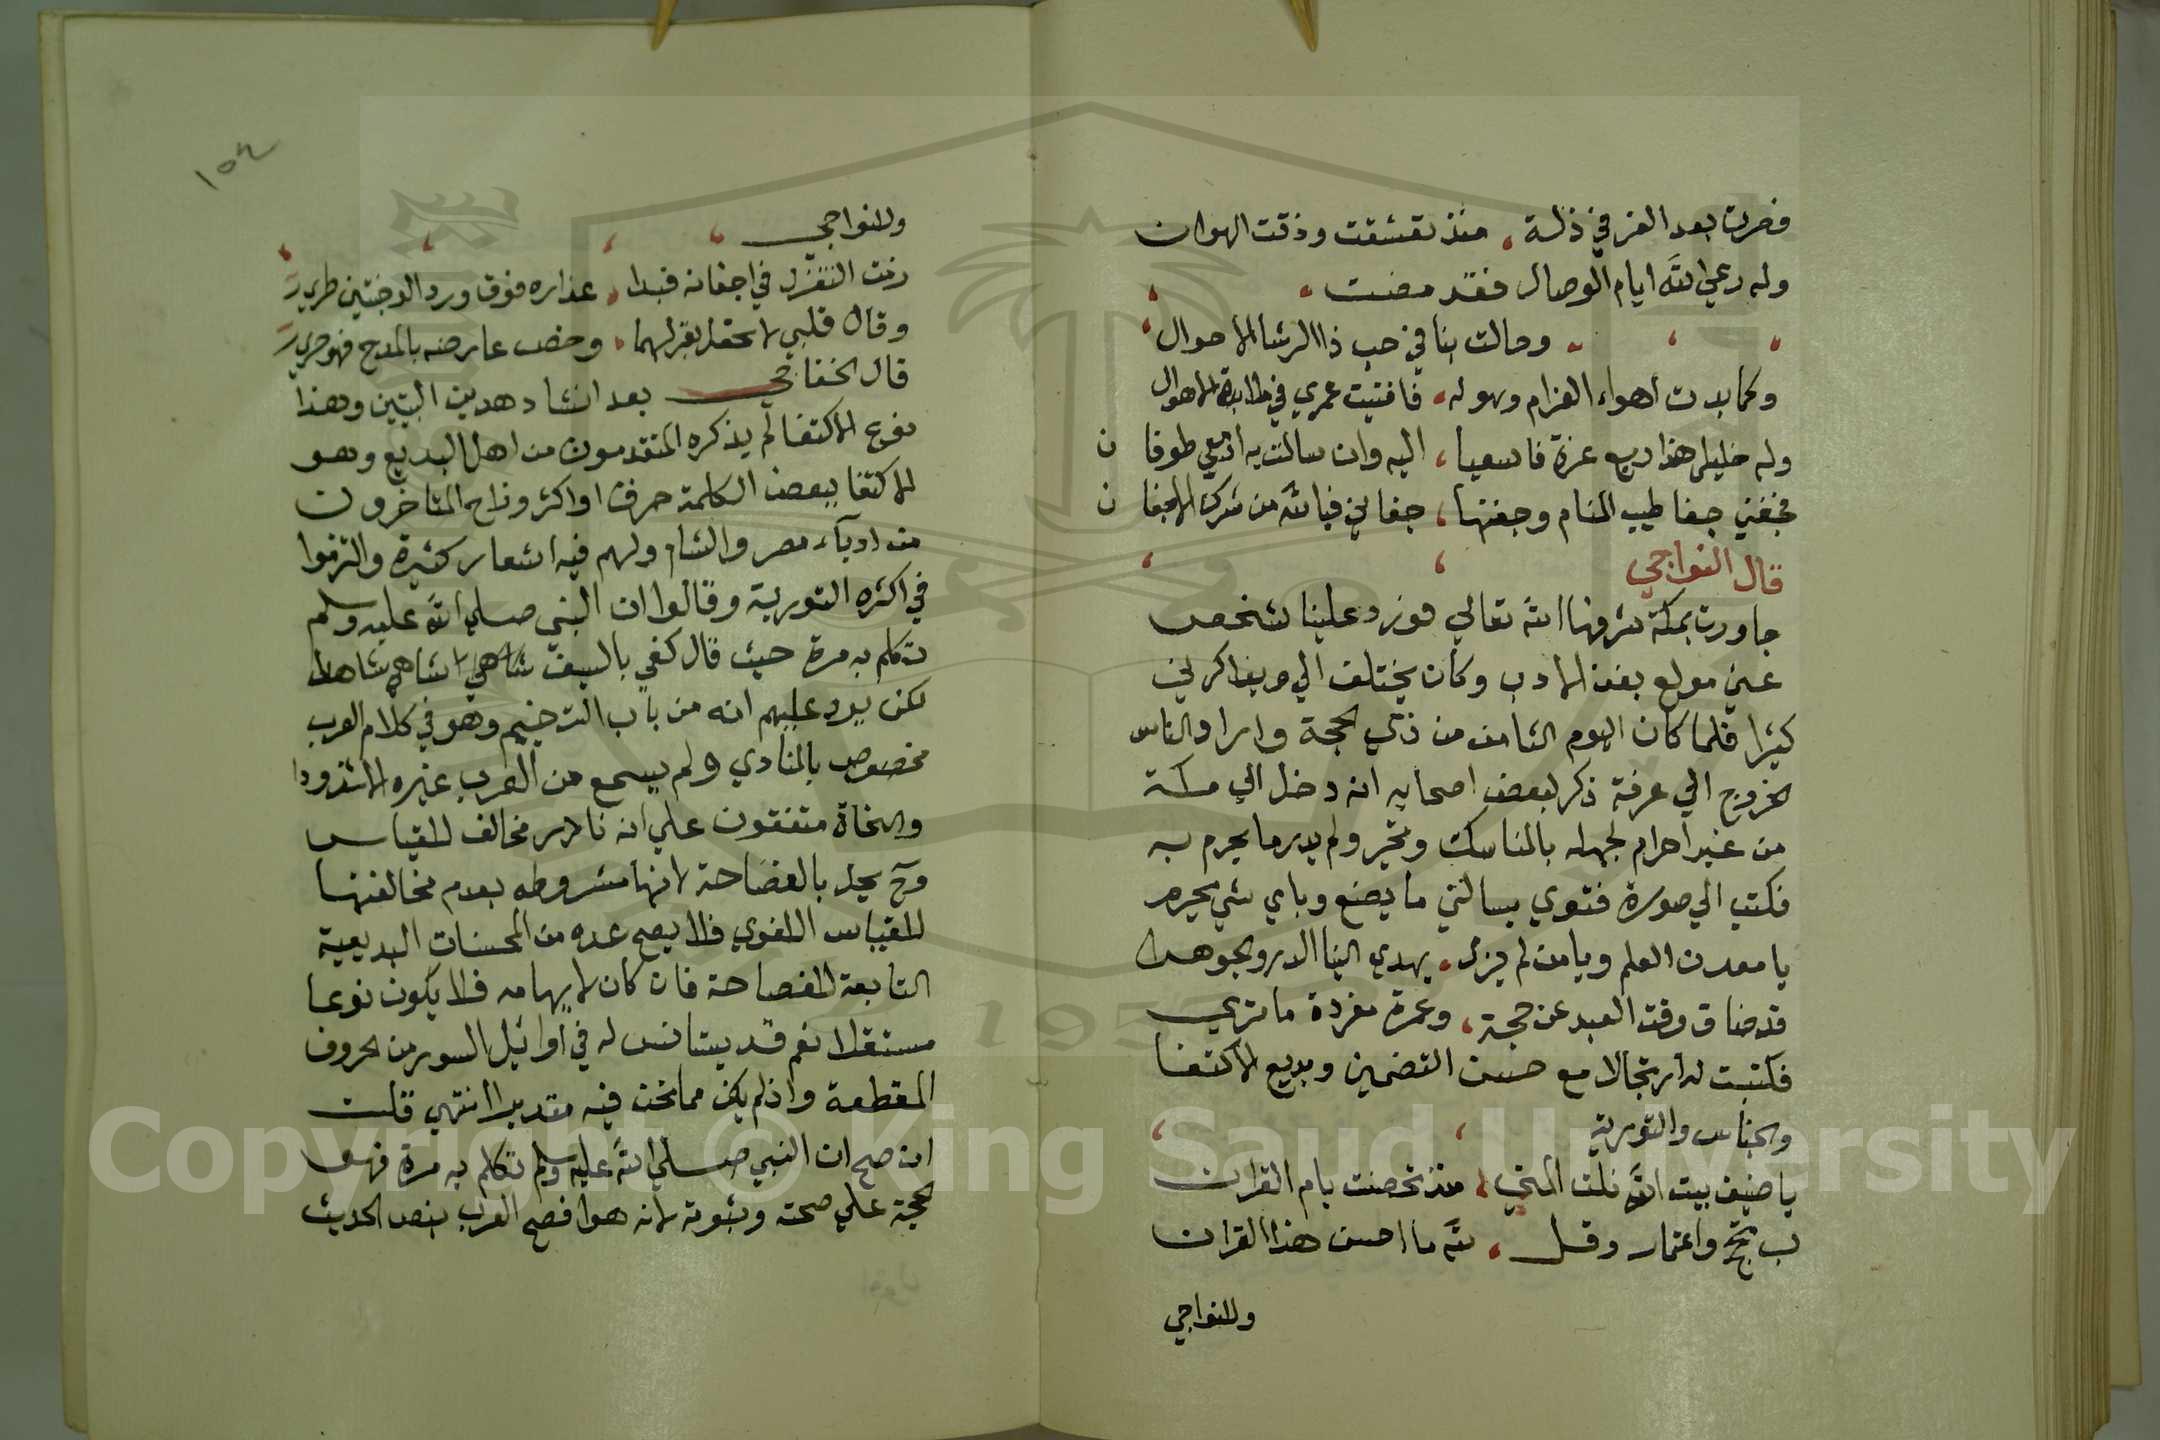 فصرت بعد العز في ذلة ، منذ تعشقت وذقت الهوان
وله رعي الله ايام الوصال فقد مضت
وحالت بنا في حب ذا الرشا الاحوال
وكابدت اهواء الغرام وهوله فافنيت عمري في مكابدة الاهوال
وله خليلي هذا ربع عزة فاسعيا ، اليه وان سالت به ادمعي طوفا ن
فجفني جفا طيب المنام وجفنها ، جفاني فيا لله من شرك الاجفا ن
قال النواجي
جاورت بمكة شرفها الله تعالي فورد علينا شخص
عيني مولع بفن الادب وكان يختلف الي ويذاكرني
كثيرا فلما كان اليوم الثامن من ذي الحجة وارادالناس
الخروج الي عرفة ذكر لبعض اصحابه انه دخل الي مكة
من غير احرام لجهله بالمناسك وتحير ولم يدر ما يحرم به
فكتب الي صورة فتوي يسالني ما يصنع وباي شي يحرم
يا معدن العلم ويا من لم يزل يهدي الينا الدر والجوهرا
قد ضاق وقت العبد عن حجة ، وعمرة مفردة ما تري
فكتبت له ارتجالا مع حسن التضمين وبديع الاكتفا
والجناس والتورية
يا ضيف بيت الله نلت المني ، منذ تحصنت بام القران
لب بحج واعتمار وقل لله ما احسن هذا القران
وللنواجي
١٥٤
وللنواجي
عذاره فوق ورد الوجنتين طرير
وقال قلبي لا تحفل بقولهما وخص عارضه بالمدح فهو حرير
قال الخفاجي بعد انشاد هذين البيتين وهذا
نوع الاكتفا لم يذكره المتقدمون من اهل البديع وهو
الاكتفا ببعض الكلمة حرف او اكثر وناح المتاخرون
من ادبآء مصر والشام ولهم فيه اشعار كثيرة والتزموا
في اكثره التورية وقالوا ان النبي صلي الله عليه وسلم
تكلم به مرة حيث قال كفي بالسيف شا
لكن يرد عليهم انه من باب الترخيم وهو في كلام العرب
مخصوص بالمنادي ولم يسمع من العرب غيره الا شذوذا
والنحاة متفقون علي انه نادر مخالف للقياس
وح يخل بالفصاحة لانها مشروطه بعدم مخالفتها
للقياس اللغوي فلا يصح عده من المحسنات البديعية
التابعة للفصاحة فان كان لايهامه فلا يكون نوعا
مستقلا نعم قد يستانس له في اوائيل السور من الحروف
المقطعة واذلم يكن مما نحن فيه تقديرا انتهي قلت
ان صح ان النبي صلي الله عليه وسلم تكلم به مرة فهو
الحجة علي صحته وثبوته لانه هو افصح العرب بنص الحديث
Copyright © King Saud University
1957